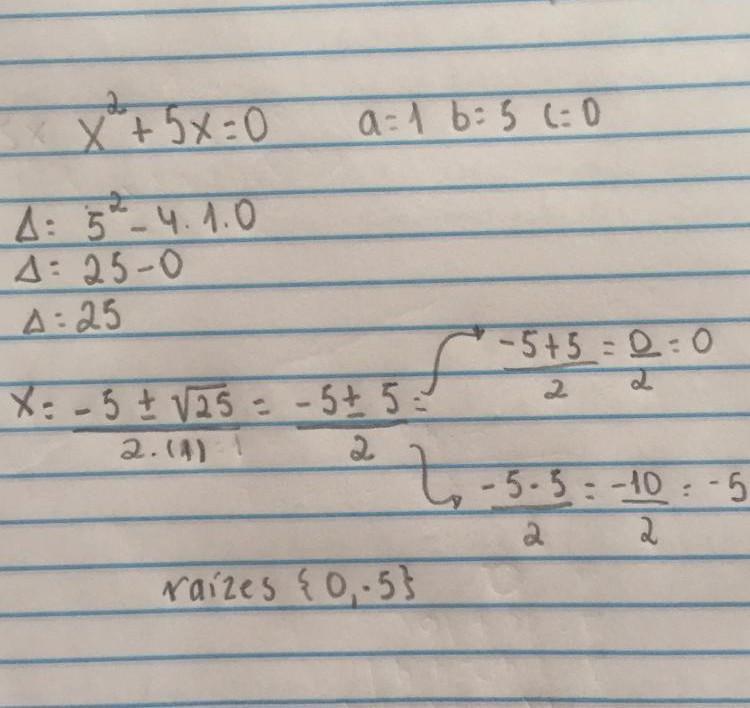 x² + 5x = 0 a = 1 b = 5 c = 0
Δ = 5² - 4 . 1 . 0
Δ = 25 - 0
Δ = 25
x = (-5 ± √25)/(2 . (1)) = (-5 ± 5)/2 =
(-5 + 5)/2 = 0/2 = 0
(-5 - 5)/2 = -10/2 = -5
raízes {0, -5}